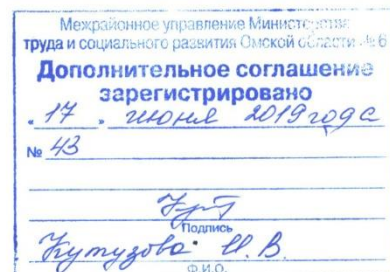 Межрайонное управление Министерства
труда и социального развития Омской области № 6
Дополнительное соглашение
зарегистрировано
" 17 " июня 2019 года
№ 43
Подпись
Кутузова И.В.
Ф.И.О.